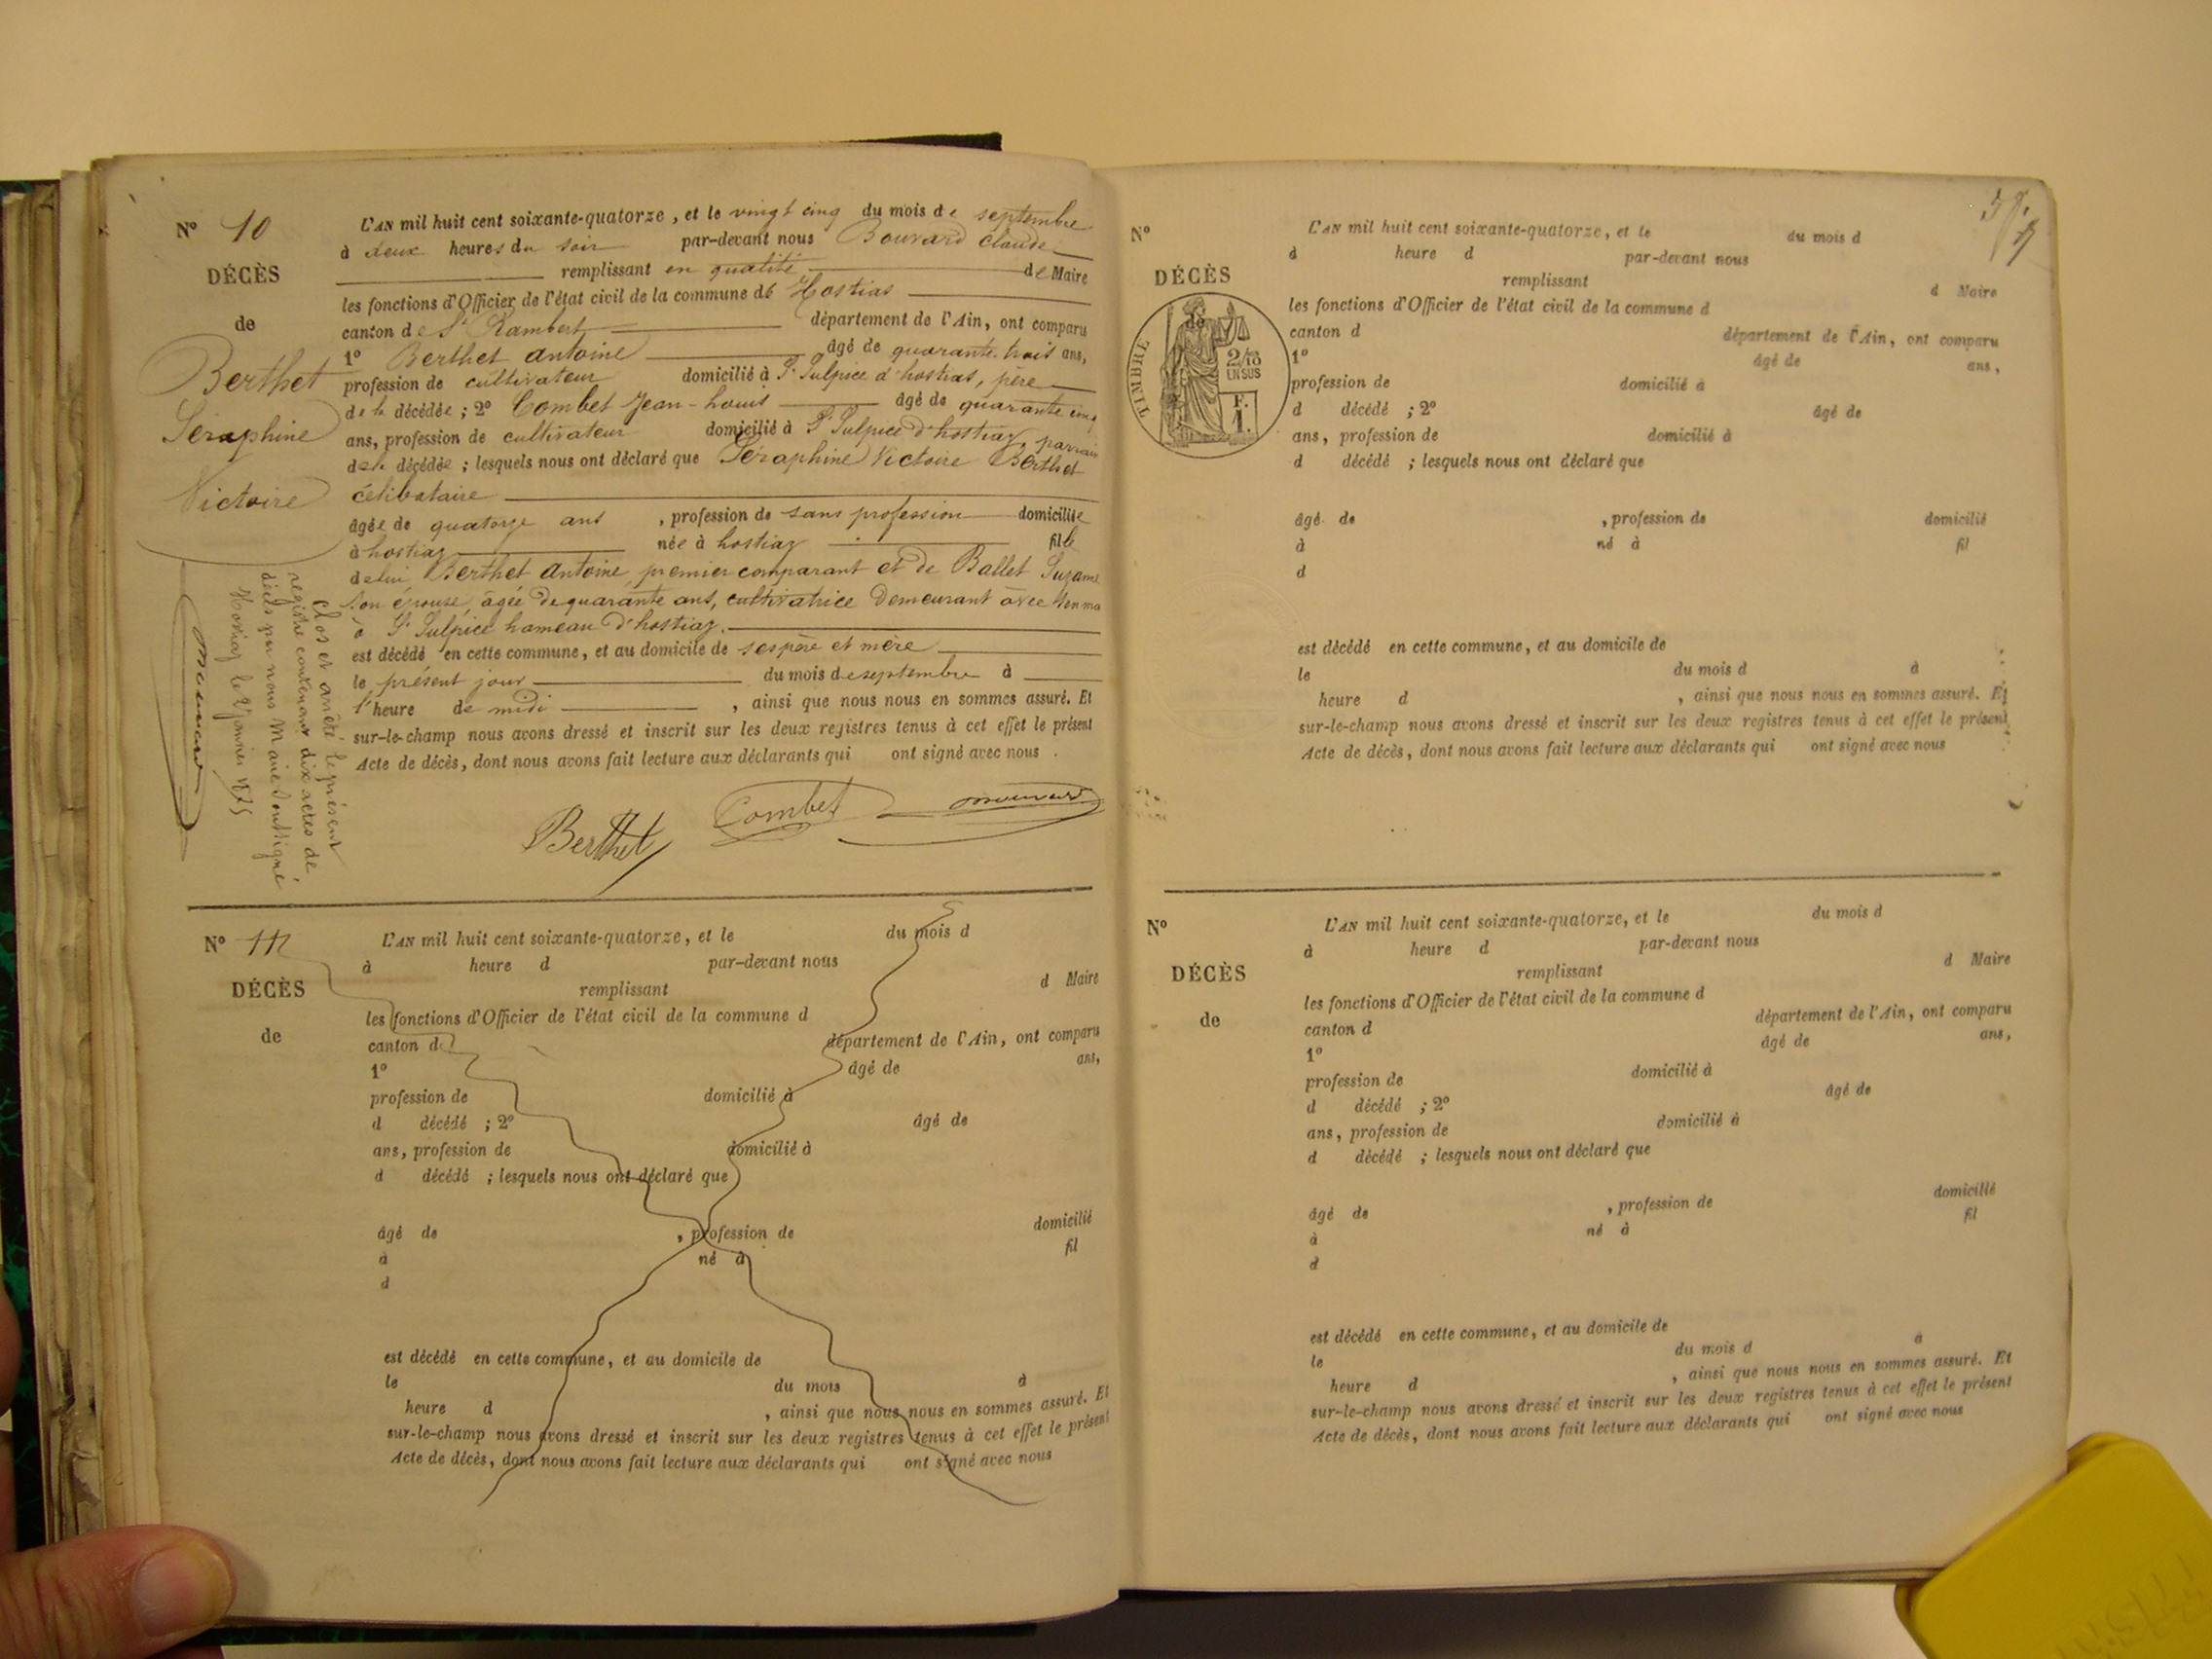 N° 10
DÉCÈS
de
Berthet
Séraphine
Victoire
L'AN mil huit cent soixante-quatorze, et le vingt cinq du mois de septembre
à deux heures du soir par-devant nous Bouvard Claude
remplissant en qualité de Maire
les fonctions d'Officier de l'état civil de la commune de Hostias
canton de St Rambert département de l'Ain, ont comparu
1° Berthet antoine âgé de quarante trois ans,
profession de cultivateur domicilié à St Sulpice d'hostias, père
de la décédée ; 2° Combet Jean-Louis âgé de quarante cinq
ans, profession de cultivateur domicilié à St Sulpice d'hostiaz, parrain
de la décédée ; lesquels nous ont déclaré que Séraphine Victoire Berthet
célibataire
âgée de quatorze ans , profession de sans profession domiciliée
à hostiaz née à hostiaz fille
de lui Berthet Antoine, premier comparant et de Ballet Suzanne
son épouse, âgée de quarante ans, cultivatrice demeurant avec son ma
à St Sulpice hameau d'hostiaz.
est décédé en cette commune, et au domicile de ses père et mère
le présent jour du mois de septembre à
l'heure de midi , ainsi que nous nous en sommes assuré. Et
sur-le-champ nous avons dressé et inscrit sur les deux registres tenus à cet effet le présent
Acte de décès, dont nous avons fait lecture aux déclarants qui ont signé avec nous .
Berthet Combet
Clos et arrêté le présent
registre contenant dix actes de
décès par nous Maire soussigné
Hostiaz le janvier 1875
N° 11
DÉCÈS
de
L'AN mil huit cent soixante-quatorze, et le du mois d
à heure d par-devant nous
remplissant d Maire
les fonctions d'Officier de l'état civil de la commune d
canton d département de l'Ain, ont comparu
1° âgé de ans,
profession de domicilié à
d décédé ; 2° âgé de
ans, profession de domicilié à
d décédé ; lesquels nous ont déclaré que
âgé de , profession de domicilié
à né à fil
d
est décédé en cette commune, et au domicile de
le du mois à
heure d , ainsi que nous nous en sommes assuré. Et
sur-le-champ nous avons dressé et inscrit sur les deux registres tenus à cet effet le présent
Acte de décès, dont nous avons fait lecture aux déclarants qui ont signé avec nous
N°
DÉCÈS
de
TIMBRE
2/10
EN SUS
F.
1.
L'AN mil huit cent soixante-quatorze, et le du mois d
à heure d par-devant nous
remplissant d Maire
les fonctions d'Officier de l'état civil de la commune d
canton d département de l'Ain, ont comparu
1° âgé de ans,
profession de domicilié à
d décédé ; 2° âgé de
ans, profession de domicilié à
d décédé ; lesquels nous ont déclaré que
âgé de , profession de domicilié
à né à fil
d
est décédé en cette commune, et au domicile de
le du mois d à
heure d , ainsi que nous nous en sommes assuré. Et
sur-le-champ nous avons dressé et inscrit sur les deux registres tenus à cet effet le présent
Acte de décès, dont nous avons fait lecture aux déclarants qui ont signé avec nous
N°
DÉCÈS
de
L'AN mil huit cent soixante-quatorze, et le du mois d
à heure d par-devant nous
remplissant d Maire
les fonctions d'Officier de l'état civil de la commune d
canton d département de l'Ain, ont comparu
1° âgé de ans,
profession de domicilié à
d décédé ; 2° âgé de
ans, profession de domicilié à
d décédé ; lesquels nous ont déclaré que
âgé de , profession de domicilié
à né à fil
d
est décédé en cette commune, et au domicile de
le du mois d à
heure d , ainsi que nous nous en sommes assuré. Et
sur-le-champ nous avons dressé et inscrit sur les deux registres tenus à cet effet le présent
Acte de décès, dont nous avons fait lecture aux déclarants qui ont signé avec nous